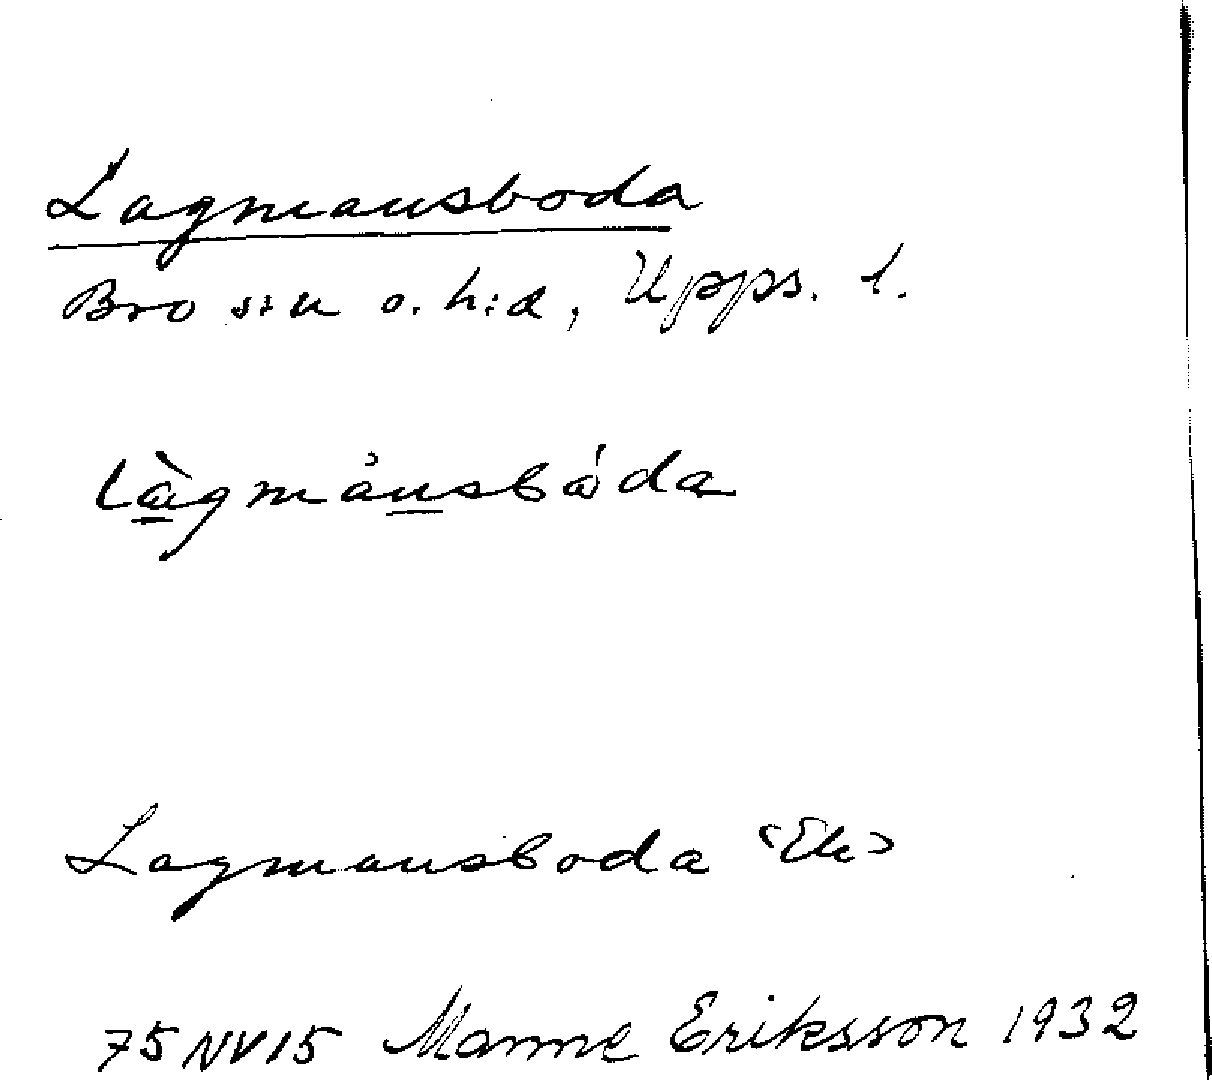 Lagmansboda
Bro s:n o. h:d, Upps. l.
làgmånsbóda
Lagmansboda <Ek>
75 NV 15 Manne Eriksson 1932